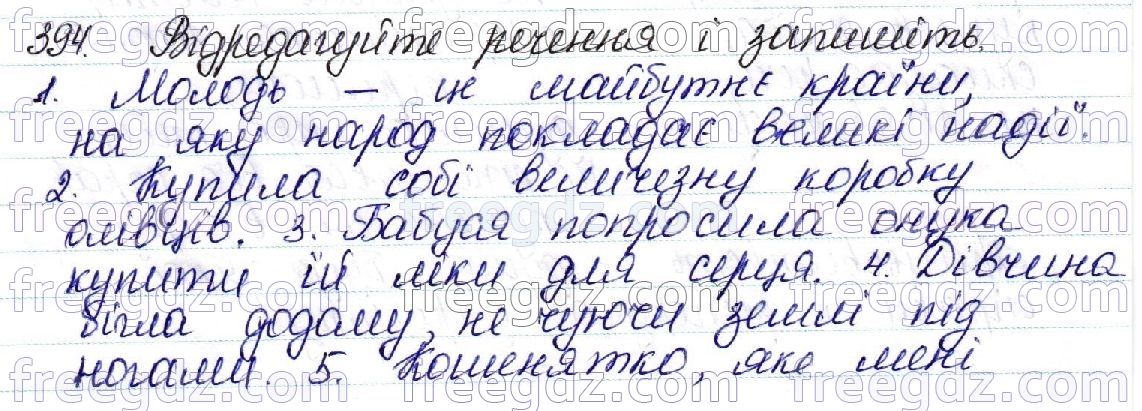 394. Відредагуйте речення і запишіть.
1. Молодь – це майбутнє країни,
на яку народ покладає великі надії".
2. Купила собі величезну коробку
олівців. 3. Бабуся попросила онука
купити їй ліки для серця. 4. Дівчина
бігла додому, не чуючи землі під
ногами. 5. Кошенятко, яке мені